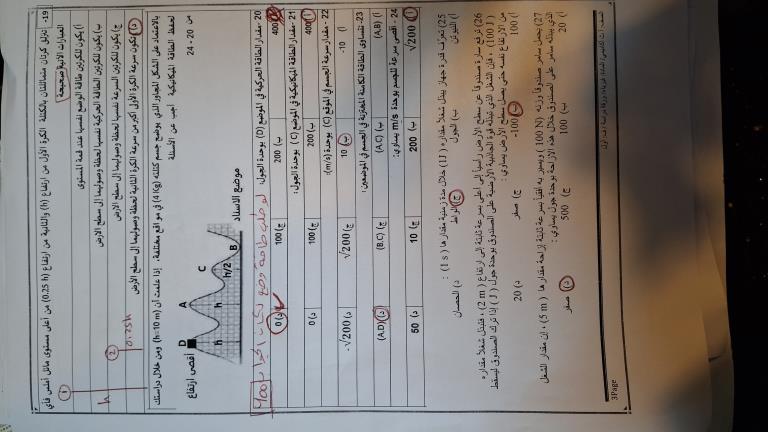 19- تنزلق كرتان متماثلتان بالكتلة الكرة الأولى من ارتفاع (h) والثانية من ارتفاع (0.25 h) من أعلى مستوى مائل أملس فأي
العبارات الآتية صحيحة:
أ) يكون للكرتين طاقة الوضع نفسها عند قمة المستوى
ب) يكون للكرتين الطاقة الحركية نفسها لحظة وصولهما إلى سطح الأرض
ج) يكون للكرتين السرعة نفسها لحظة وصولهما إلى سطح الأرض
د) تكون سرعة الكرة الأولى أكبر من سرعة الكرة الثانية لحظة وصولهما إلى سطح الأرض
1
h
2
0.25h
بالاعتماد على الشكل المجاور الذي يوضح جسم كتلته (4 Kg) في مواقع مختلفة، إذا علمت أن (h=10 m) ومن خلال دراستك
لحفظ الطاقة الميكانيكية أجب عن الأسئلة
من 20 - 24
D
A
C
B
h
h
h/2
أقصى ارتفاع
موضع الاسناد
20 - مقدار الطاقة الحركية في الموضع (D) بوحدة الجول:
أ) 400
ب) 200
ج) 100
د) 0
400
21 - مقدار الطاقة الميكانيكية في الموضع (C) بوحدة الجول:
أ) 400
ب) 200
ج) 100
د) 0
22 - مقدار سرعة الجسم في الموقع (C) بوحدة (m/s):
أ) 10-
ب) 10
ج) √200
د) -√200
23- تتساوى الطاقة الكامنة المختزنة في الجسم في الموضعين:
أ) (A,B)
ب) (A,C)
ج) (B,C)
د) (A,D)
24 - أقصى سرعة للجسم بوحدة m/s يساوي:
أ) √200
ب) 200
ج) 10
د) 50
25) تعرف قدرة جهاز يبذل شغلاً مقداره (1 J) خلال مدة زمنية مقدارها (1 s) :
أ) النيوتن
ب) الجول
ج) الواط
د) الحصان
26) ترفع سارة صندوقاً عن سطح الأرض رأسياً إلى أعلى بسرعة ثابتة إلى ارتفاع (2 m) ، فتبذل شغلاً مقداره
(100 J) ، فإن الشغل الذي تبذله قوة الجاذبية الأرضية على الصندوق بوحدة جول (J) إذا ترك الصندوق ليسقط
من الارتفاع نفسه حتى يصل سطح الأرض يساوي :
أ) 100
ب) 100-
ج) صفر
د) 20
27) يحمل سامر صندوقاً وزنه (100 N) ويسير به أفقياً بسرعة ثابتة إزاحة مقدارها (5 m) ، إن مقدار الشغل
الذي يبذله سامر على الصندوق خلال هذه الإزاحة بوحدة جول يساوي :
أ) 20
ب) 100
ج) 500
د) صفر
3Page